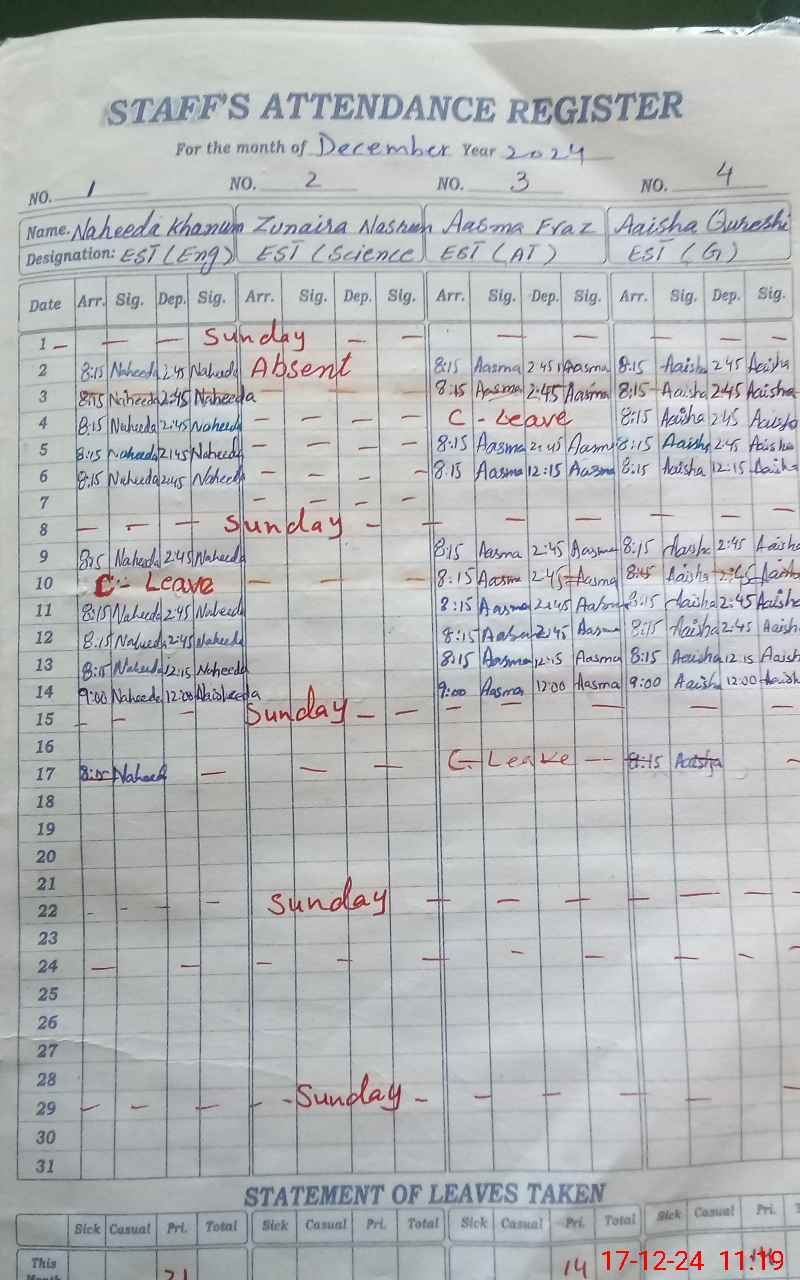 STAFF'S ATTENDANCE REGISTER
For the month of December Year 2024
NO. 1 NO. 2 NO. 3 NO. 4
Name. Naheeda Khanum Zunaira Aasma Fraz Aaisha Qureshi
Designation: EST (Eng) EST (Science EST (AT) EST (G)
Date Arr. Sig. Dep. Sig. Arr. Sig. Dep. Sig. Arr. Sig. Dep. Sig. Arr. Sig. Dep. Sig.
1 – – – Sunday – – – – – – –
2 8:15 Naheeda 2:45 Naheeda Absent 8:15 Aasma 2:45 Aasma 8:15 Aaisha 2:45 Aaisha
3 8:15 Naheeda 2:45 Naheeda – – 8:15 Aasma 2:45 Aasma 8:15 Aaisha 2:45 Aaisha
4 8:15 Naheeda 2:45 Naheeda – – – – C - Leave 8:15 Aaisha 2:45 Aaisha
5 8:15 Naheeda 2:45 Naheeda – – – – 8:15 Aasma 2:45 Aasma 8:15 Aaisha 2:45 Aaisha
6 8:15 Naheeda 2:45 Naheeda – – – – 8:15 Aasma 12:15 Aasma 8:15 Aaisha 12:15 Aaisha
7 – – – –
8 – – – Sunday – – – – – – –
9 8:15 Naheeda 2:45 Naheeda 8:15 Aasma 2:45 Aasma 8:15 Aaisha 2:45 Aaisha
10 C - Leave – – – – 8:15 Aasma 2:45 Aasma 8:15 Aaisha 2:45 Aaisha
11 8:15 Naheeda 2:45 Naheeda 8:15 Aasma 2:45 Aasma 8:15 Aaisha 2:45 Aaisha
12 8:15 Naheeda 2:45 Naheeda 8:15 Aasma 2:45 Aasma 8:15 Aaisha 2:45 Aaisha
13 8:15 Naheeda 12:15 Naheeda 8:15 Aasma 12:15 Aasma 8:15 Aaisha 12:15 Aaisha
14 9:00 Naheeda 12:00 Naheeda 9:00 Aasma 12:00 Aasma 9:00 Aaisha 12:00 Aaisha
15 – – – Sunday – – – – – – –
16
17 8:15 Naheed – – – C - Leave – – 8:15 Aaisha –
18
19
20
21
22 – – – Sunday – – – – – – –
23
24 – – – – – – – – – –
25
26
27
28
29 – – – – - Sunday – – – – – –
30
31
STATEMENT OF LEAVES TAKEN
Sick Casual Pri. Total Sick Casual Pri. Total Sick Casual Pri. Total Sick Casual Pri.
This 14
Month 21
17-12-24 11:19